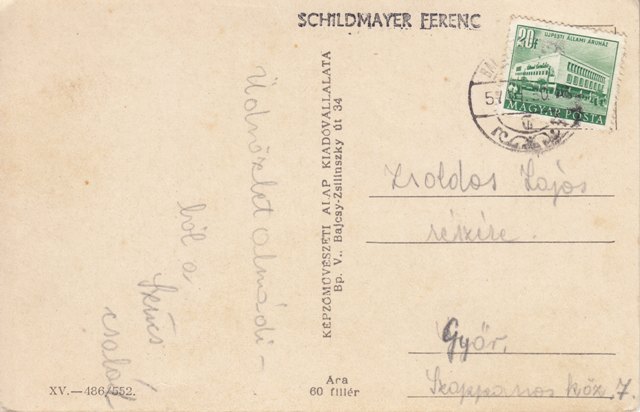 SCHILDMAYER FERENC
20f
ÚJPESTI ÁLLAMI ÁRUHÁZ
MAGYAR POSTA
Üdvözlet almádi-
ból a
Szücs
család
KÉPZŐMŰVÉSZETI ALAP KIADÓVÁLLALATA
Bp. V., Bajcsy-Zsilinszky út 34
Zsoldos Lajos
részére.
Győr.
Szappanos köz 7.
Ára
60 fillér
XV.—486/552.